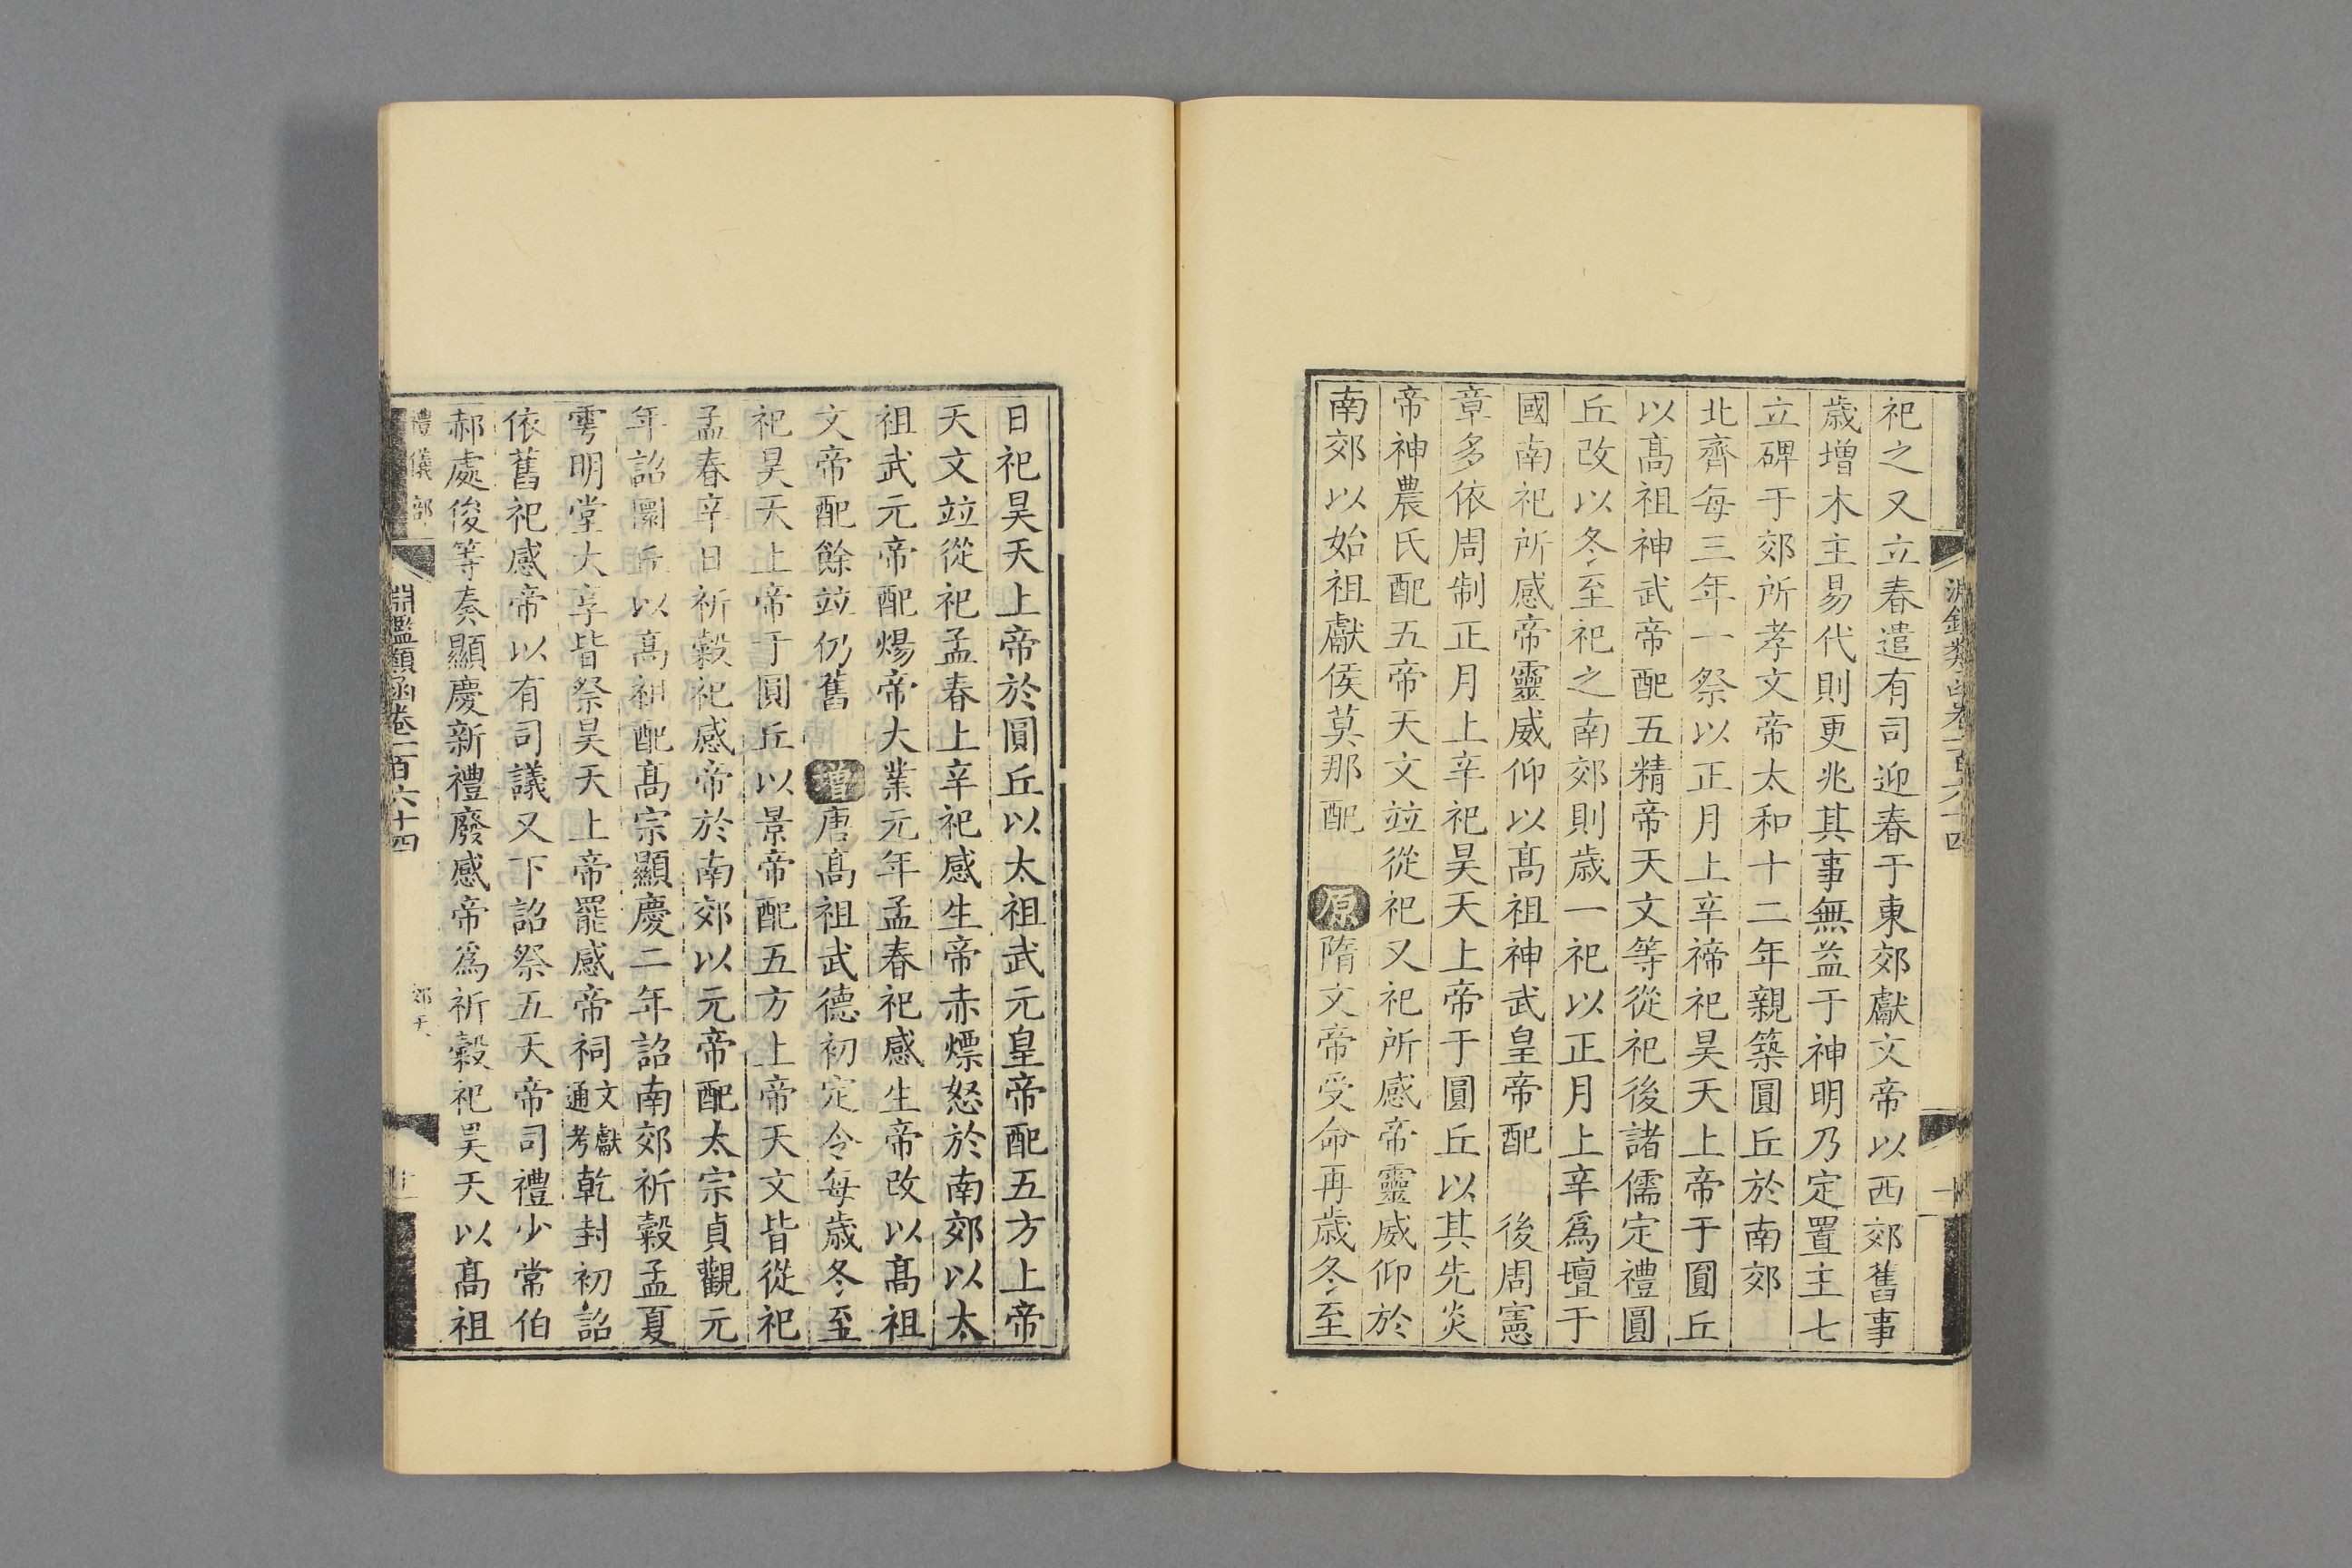 祀之又立春遣有司迎春于東郊獻文帝以西郊舊事
歲增木主易代則更兆其事無益于神明乃定置主七
立碑于郊所孝文帝太和十二年親築圓丘於南郊
北齊每三年一祭以正月上辛禘祀昊天上帝于圓丘
以髙祖神武帝配五精帝天文等從祀後諸儒定禮圓
丘改以冬至祀之南郊則歲一祀以正月上辛爲壇于
國南祀所感帝靈威仰以髙祖神武皇帝配 後周憲
章多依周制正月上辛祀昊天上帝于圓丘以其先炎
帝神農氏配五帝天文竝從祀又祀所感帝靈威仰於
南郊以始祖獻侯莫那配 原隋文帝受命再歲冬至
日祀昊天上帝於圓丘以太祖武元皇帝配五方上帝
天文竝從祀孟春上辛祀感生帝赤熛怒於南郊以太
祖武元帝配煬帝大業元年孟春祀感生帝改以髙祖
文帝配餘竝仍舊 增唐髙祖武德初定令每歲冬至
祀昊天上帝于圓丘以景帝配五方上帝天文皆從祀
孟春辛日祈穀祀感帝於南郊以元帝配太宗貞觀元
年詔圜丘以髙祖配髙宗顯慶二年詔南郊祈穀孟夏
雩明堂大享皆祭昊天上帝罷感帝祠文獻通考乾封初詔
依舊祀感帝以有司議又下詔祭五天帝司禮少常伯
郝處俊等奏顯慶新禮廢感帝爲祈穀祀昊天以髙祖
禮儀部 淵鑑類函卷一百六十四 郊天